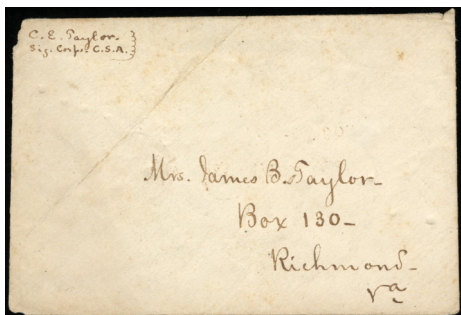 C. E. Taylor.
Sig. Corps. C.S.A.
Mrs. James B. Taylor-
Box 130-
Richmond-
Va